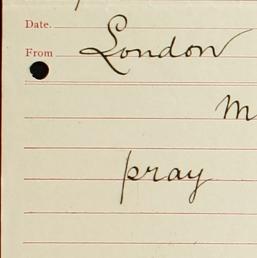 Date.
From London
pray